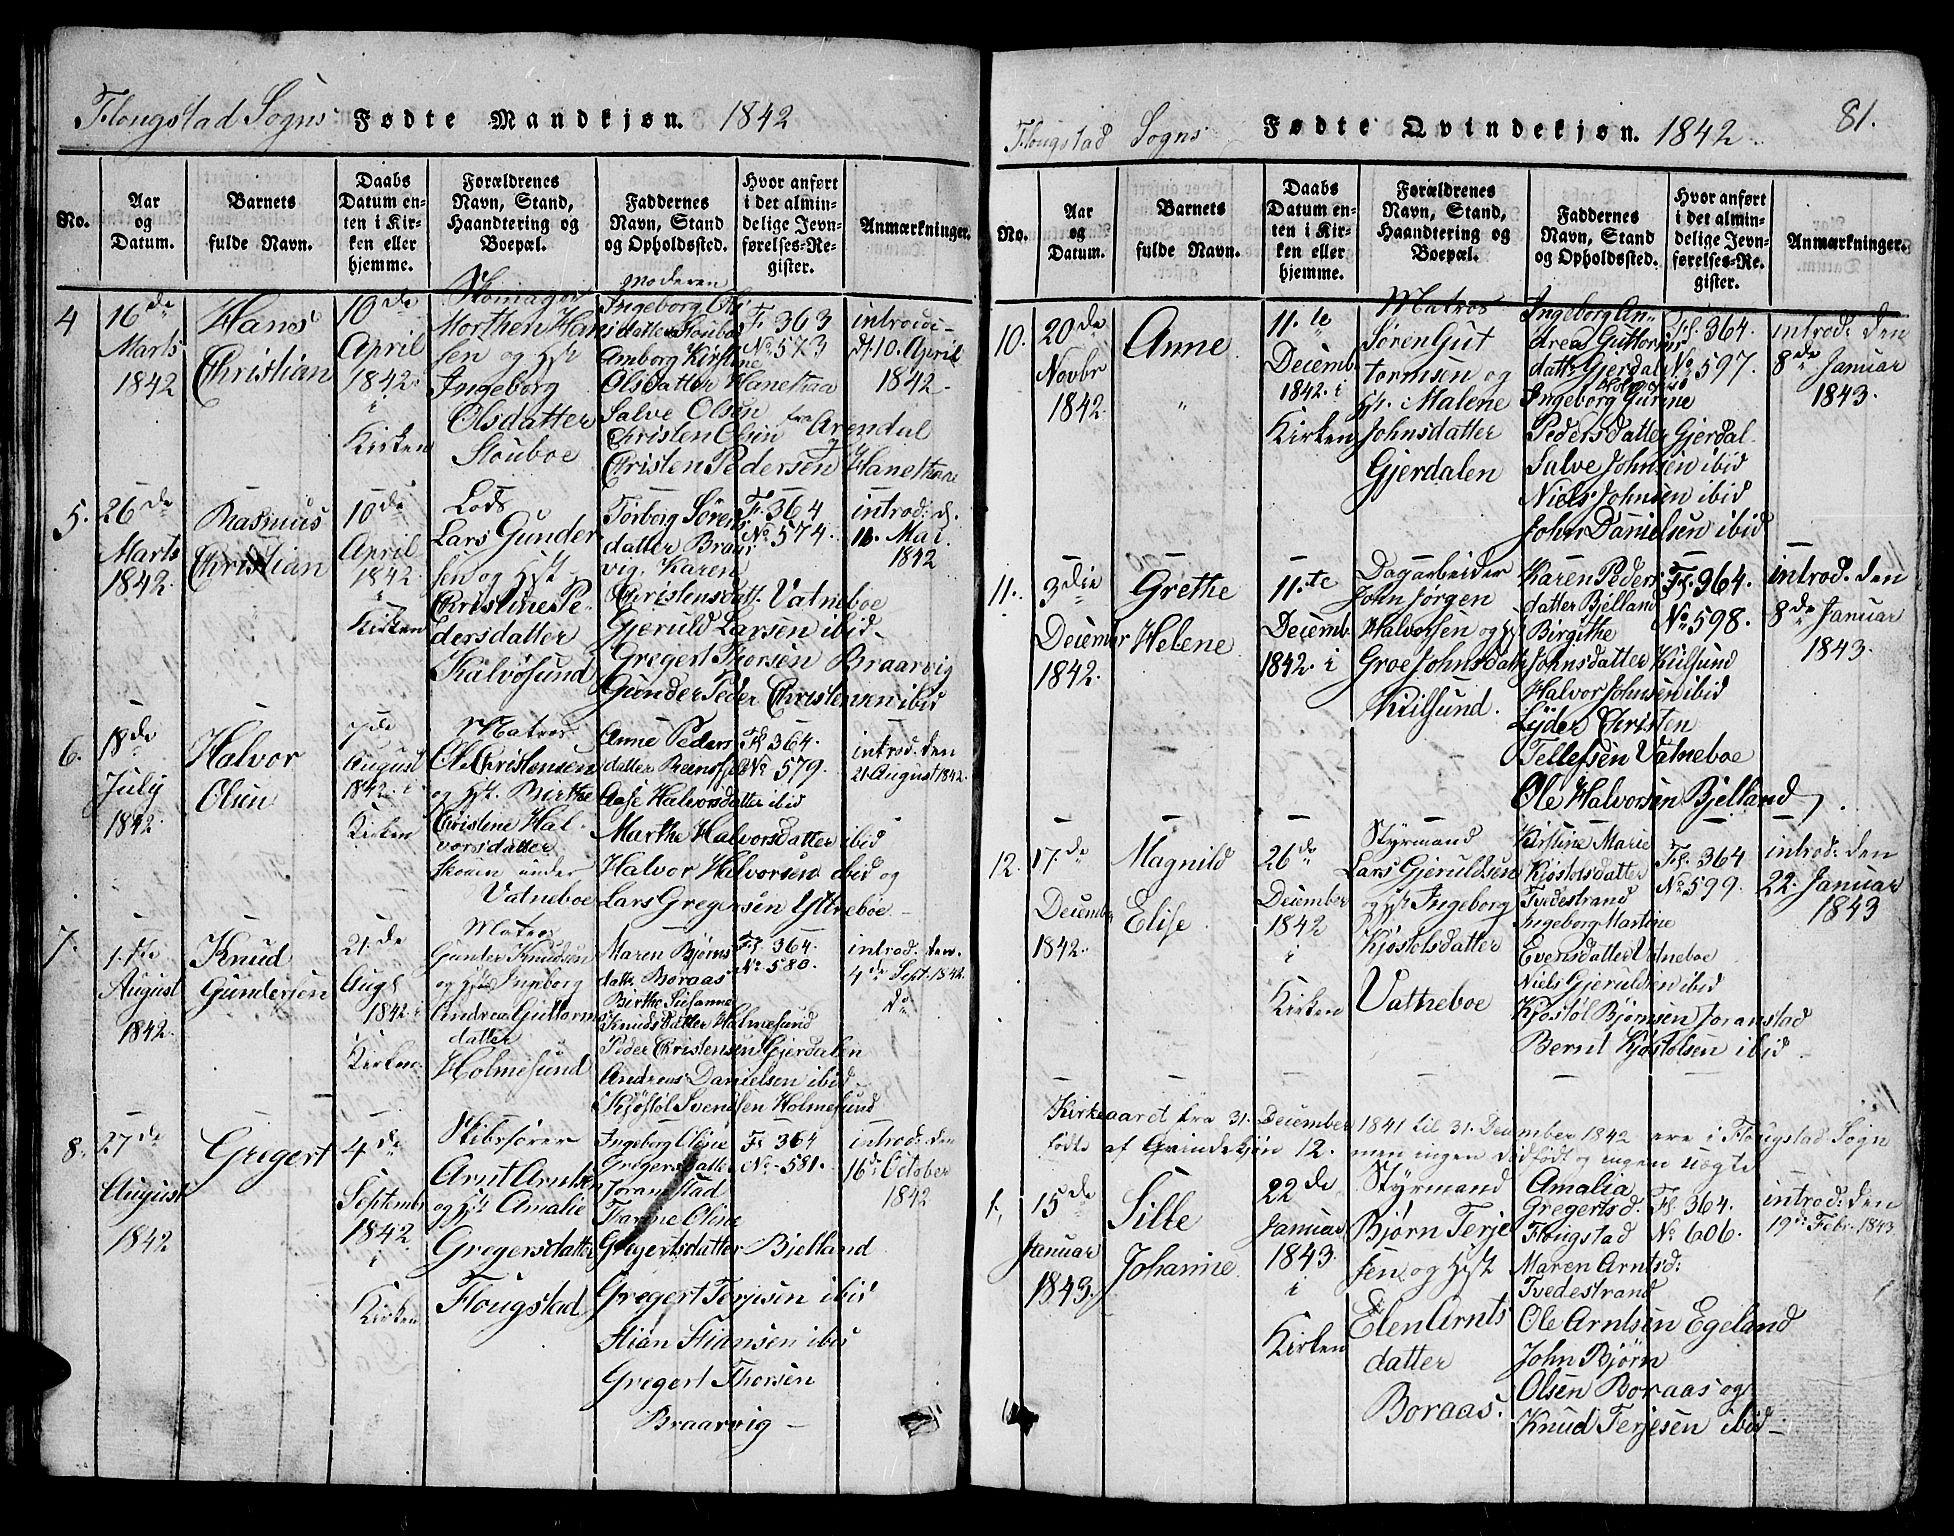 Flougstad Sogns Fødte Mandkjøn. 1842
No.
Aar og Datum.
Barnets fulde Navn.
Daabs Datum enten i Kirken eller hjemme.
Forældrenes Navn, Stand, Haandtering og Boepæl.
Faddernes Navn, Stand og Opholdssted.
Hvor anført i det almindelige Jevnførelses-Register.
Anmærkninger.
4
16de
Marts
1842
Hans
Christian
10de
April
1842
i
Kirken
Skomager
Morthen Han
sen og Hst
Ingeborg
Olsdatter
Stouboe
Moderen
Amborg Kirstine
Olsdatter Hanethaa
Salve Olsen
Christen Olsen fra Arendal
Christen Pedersen Hanethaae
F. 363
No 573
introd:
d. 10. April
1842
5.
26de
Marts
1842.
Rasmus
Christian
10de
April
1842
i
Kirken
Lods
Lars Gunder
sen og Hst
Christine Pe-
dersdatter
Kalvøsund
Torborg Sørens
datter Braar
vig. Karen
Christensdatt. Vatneboe
Gjeruld Larsen ibid
Gregert Thorsen Braarvig
Gunder Peder Christensen ibid
F. 364
No 574.
introd: d.
16. Mai.
1842
6.
18de
July
1842.
Halvor
Olsen
7de
August
1842 i
Kirken
Matros
Ole Christensen
og Hst. Birthe
Christine Hal-
vorsdatter
Skoven under
Vatneboe
Anne Peders
datter
Aase Halvorsdatter ibid
Marthe Halvorsdatter ibid
Halvor Halvorsen ibid og
Lars Gregersen Ytreboe
Fl 364.
No 579.
introd: den
21 August 1842.
7.
1ste
August
1842.
Knud
Gundersen
21.de
Augt
1842 i
Kirken.
Matros
Gunder Knudsen
og Hst Ingeborg
Andrea Guttorms
datter
Holmesund
Maren Bjørns
datt. Boraas
Birthe Susanne
Knudsdatter Holmesund
Peder Christensen Gjerdalen
Andreas Danielsen ibid
Kjøstøl Svendsen Holmesund
Fl. 364.
No. 580.
introd. den.
4de Sept. 1842.
8.
27de
August
1842
Gregert
4de
September
1842
i
Kirken
Skibsfører
Arnt Arntsen
og Hst Amalie
Gregersdatter
Flougstad
Ingeborg Oline
Gregersdatter
Joranstad
Thomine Oline
Gregertsdatter Bjelland
Gregert Terjesen ibid
Stian Stiansen ibid
Gregert Thorsen
Braarvig
Fl 364
No 581.
introd: den
16de October
1842
Flougstad Sogns Fødte Qvindekjøn. 1842.
81.
No.
Aar og Datum.
Barnets fulde Navn.
Daabs Datum enten i Kirken eller hjemme.
Forældrenes Navn, Stand, Haandtering og Boepæl.
Faddernes Navn, Stand og Opholdssted.
Hvor anført i det almindelige Jevnførelses-Register.
Anmærkninger.
10.
20de
Novbr
1842.
Anne
11.te
Decemb
1842. i
Kirken
Matros
Søren Gut
tormsen og
Hst. Malene
Johnsdatter
Gjerdalen
Ingeborg An-
drea Guttorms
datt. Gjerdal
Ingeborg Gurine
Pedersdatter Gjerdal
Salve Johnsen ibid
Niels Johnsen ibid
John Danielsen ibid
Fl. 364.
No 597.
introd: den
8de Januar
1843.
11.
3die
December
1842.
Grethe
Helene
11.te
Decemb.
1842. i
Dagarbeider
John Jørgen
Halvorsen og Hst
Groe Johnsdatt
Kiilsund.
Karen Peders
datter Bjelland
Birgithe
Johnsdatter Kiilsund
Halvor Johnsen ibid
Lyder Christen
Tellefsen Vatneboe
Ole Halvorsen Bjelland
Fl. 364.
No 598.
introd: den
8de Januar
1843.
12.
17.de
December
1842.
Magnild
Elise
26de
December
1842
i
Kirken
Styrmand
Lars Gjeruldsen
og Hst Ingeborg
Kjøstolsdatter
Vatneboe
Kirstine Marie
Kjøstolsdatter
Tvedestrand
Ingeborg Martine
Evensdatter Vatneboe
Niels Gjeruldsen ibid
Kjøstøl Bjørnsen Joranstad
Bernt Kjøstolsen ibid
Fl. 364
No 599.
introd: den
22. Januar
1843
Kirkeaaret fra 31. December 1841 til 31. December 1842 ere i Flougstad Sogn
fødte af Qvindekjøn 12. men ingen dødfødt og ingen uægte
1,
15de
Januar
1843.
Sille
Johanne
22de
Januar
1843.
i
Kirken
Styrmand
Bjørn Terje
sen og Hst
Elen Arnts
datter
Boraas.
Amalia
Gregertsd.
Flougstad
Maren Arntsd:
Tvedestrand
Ole Arntsen Egeland
John Bjørn
Olsen Boraas og
Knud Terjesen ibid
Fl. 364.
No 606.
introd: den
19de Febr. 1843